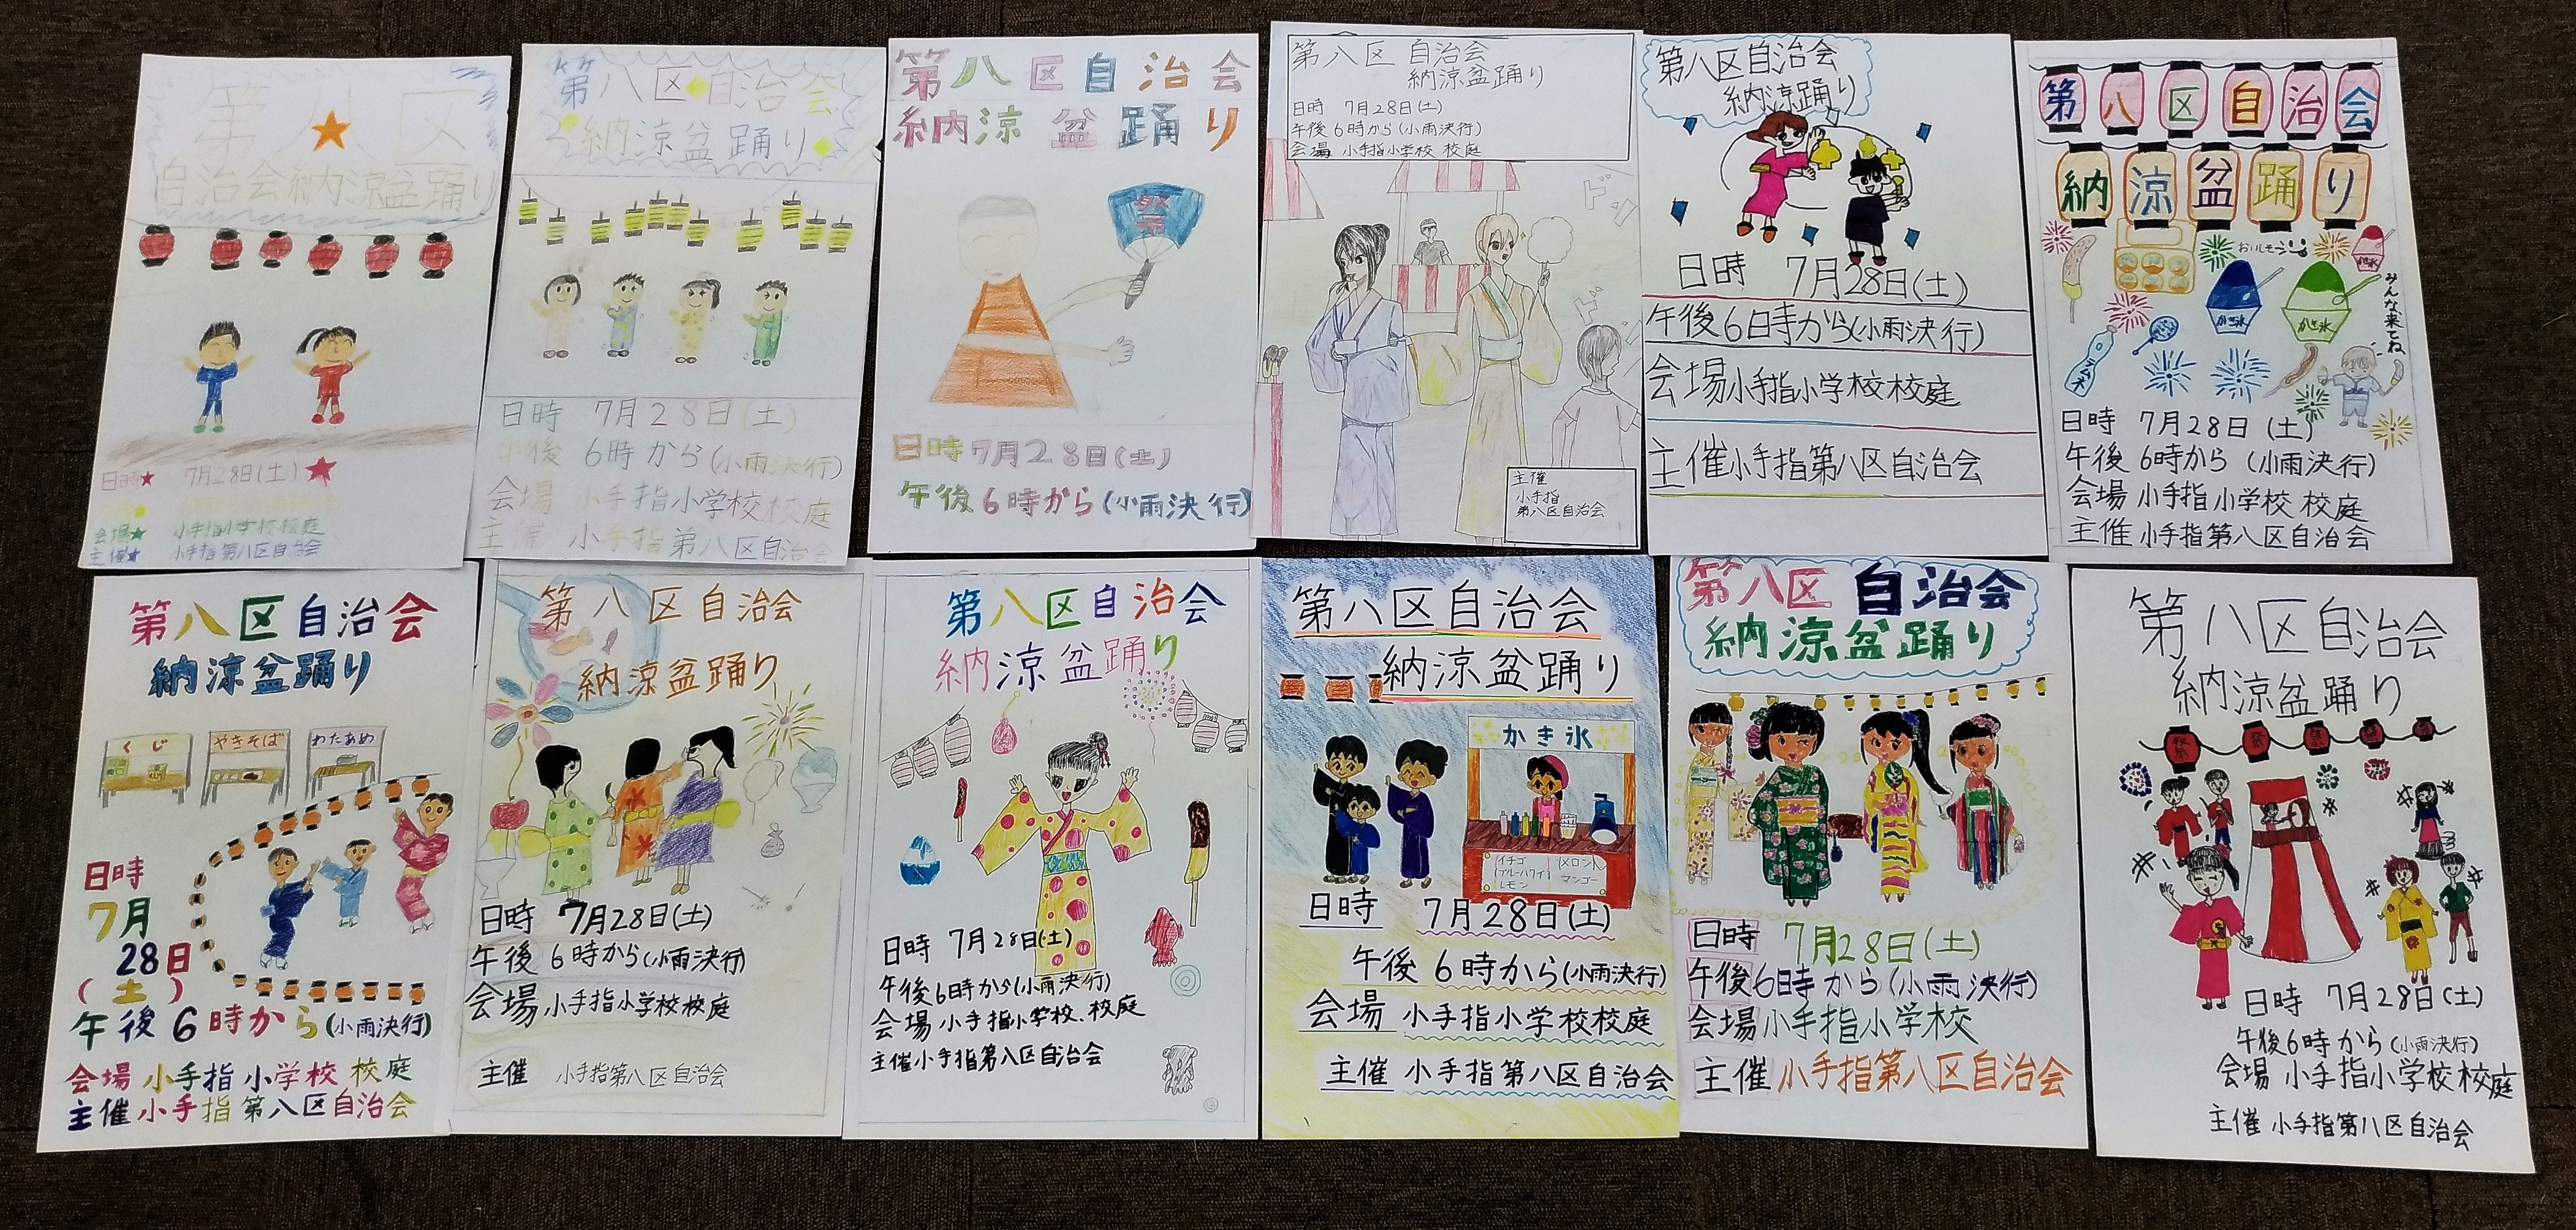 第八区
自治会納涼盆踊り
日時★ 7月28日(土)
会場★ 小手指小学校校庭
主催★ 小手指第八区自治会
第八区自治会
納涼盆踊り
日時 7月28日(土)
午後 6時から(小雨決行)
会場 小手指小学校校庭
主催 小手指第八区自治会
第八区自治会
納涼盆踊り
祭
日時7月28日(土)
午後6時から(小雨決行)
第八区 自治会
納涼盆踊り
日時 7月28日(土)
午後6時から(小雨決行)
会場 小手指小学校 校庭
ドン
ドン
主催
小手指
第八区自治会
第八区自治会
納涼踊り
日時 7月28日(土)
午後6時から(小雨決行)
会場小手指小学校校庭
主催小手指第八区自治会
第八区自治会
納涼盆踊り
おいしそー
かき氷
かき氷
かき氷
みんな来てね
ラムネ
日時 7月28日(土)
午後 6時から (小雨決行)
会場 小手指小学校 校庭
主催 小手指第八区自治会
第八区自治会
納涼盆踊り
くじ
やきそば
わたあめ
日時
7月
28日
(土)
午後6時から(小雨決行)
会場 小手指小学校 校庭
主催 小手指第八区自治会
第八区自治会
納涼盆踊り
日時 7月28日(土)
午後 6時から(小雨決行)
会場 小手指小学校校庭
主催 小手指第八区自治会
第八区自治会
納涼盆踊り
日時 7月28日(土)
午後6時から(小雨決行)
会場 小手指小学校 校庭
主催小手指第八区自治会
第八区自治会
納涼盆踊り
かき氷
イチゴ
ブルーハワイ
レモン
メロン
マンゴー
日時 7月28日(土)
午後 6時から(小雨決行)
会場 小手指小学校校庭
主催 小手指第八区自治会
第八区 自治会
納涼盆踊り
日時 7月28日(土)
午後6時から(小雨決行)
会場小手指小学校
主催小手指第八区自治会
第八区自治会
納涼盆踊り
祭
祭
祭
祭
祭
日時 7月28日(土)
午後6時から(小雨決行)
会場 小手指小学校校庭
主催 小手指第八区自治会